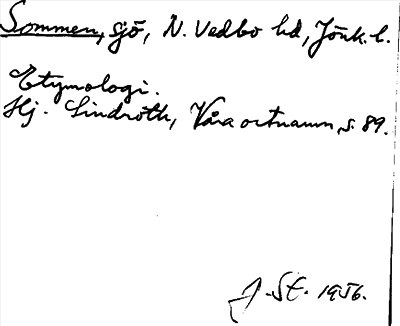 Sommen, sjö, N. Vedbo hd, Jönk. l.
Etymologi.
Hj. Lindroth, Våra ortnamn, s. 89.
J. St. 1956.